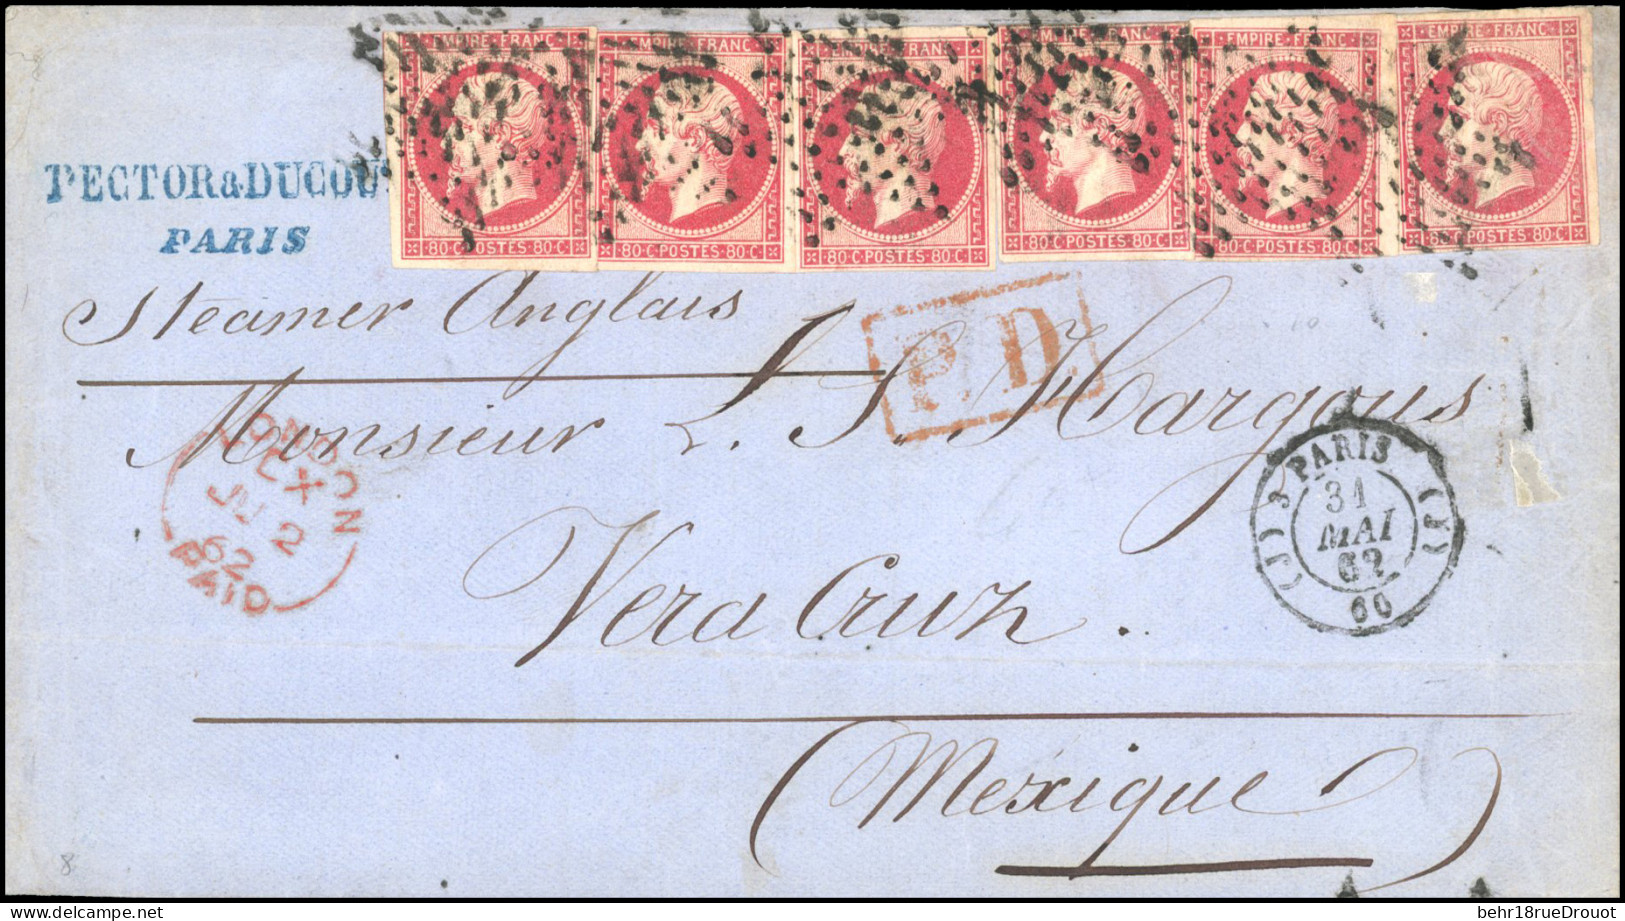 EMPIRE · FRANC EMPIRE · FRANC EMPIRE · FRANC EMPIRE · FRANC
80·C·POSTES·80·C 80·C·POSTES·80·C 80·C·POSTES·80·C 80·C·POSTES·80·C 80·C·POSTES·80·C 80·C·POSTES·80·C
PECTOR&DUCOU
PARIS
Steamer Anglais
P.D.
Monsieur L. S. Hargous
LONDON
EX
JU 2
62
PAID
(J) 3 PARIS (J)
31
MAI
62
60
Vera Cruz.
(Mexique)
8
behr18rueDrouot